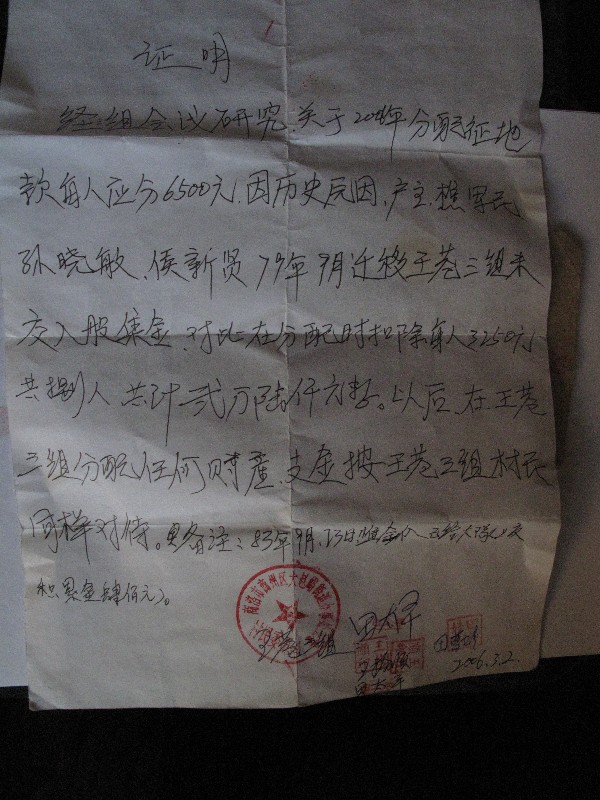 证明
经组会议研究.关于2005年分配征地
款每人应分6500元.因历史反因,户主
孙晓敏、侯新贤79年9月迁移王巷三组未
交入股集金.对此在分配时扣除每人3250元
共捌人 共计贰万陆仟元整。以后,在王巷
三组分配任何财产、支金按王巷三组村民
同样对待。另备注:83年9月
积累金肆佰元)。
王巷三组
2006.3.2.